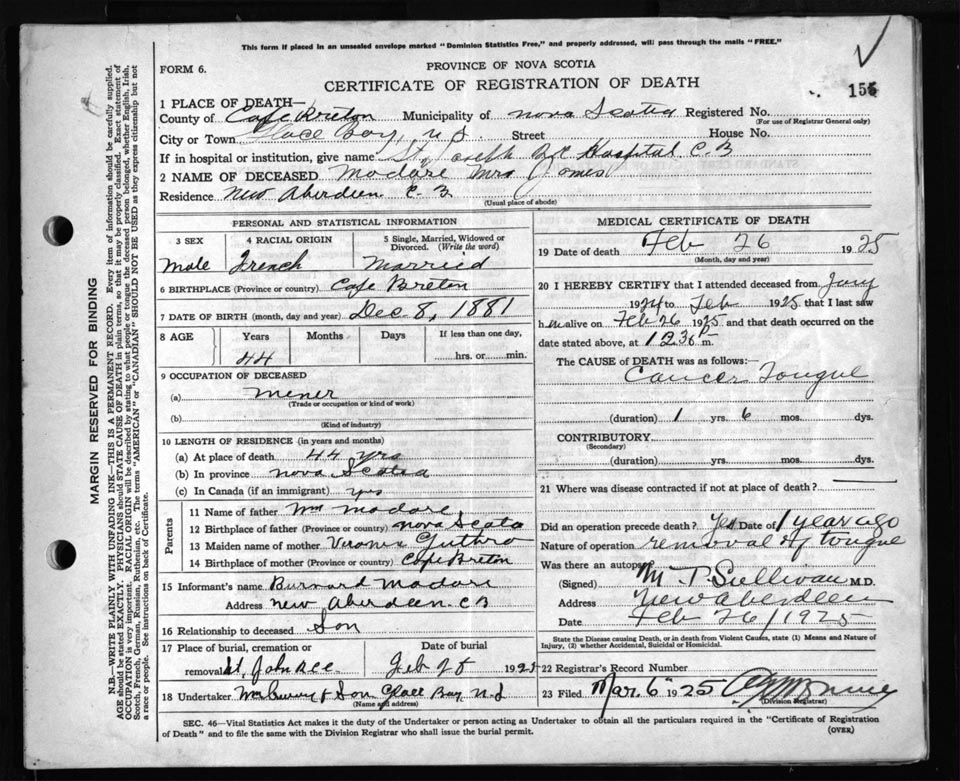 This form if placed in an unsealed envelope marked "Dominion Statistics Free," and properly addressed, will pass through the mails "FREE."
FORM 6.
PROVINCE OF NOVA SCOTIA
CERTIFICATE OF REGISTRATION OF DEATH
155
1 PLACE OF DEATH—
County of Cape Breton Municipality of Nova Scotia Registered No.
(For use of Registrar General only)
City or Town Glace Bay, N S. Street House No.
If in hospital or institution, give name St. Joseph Hospital C. B
2 NAME OF DECEASED Madore Mrs James
Residence New Aberdeen C. B
(Usual place of abode)
MARGIN RESERVED FOR BINDING
N.B.—WRITE PLAINLY WITH UNFADING INK—THIS IS A PERMANENT RECORD. Every item of information should be carefully supplied.
AGE should be stated EXACTLY. PHYSICIANS should STATE CAUSE OF DEATH in plain terms, so that it may be properly classified. Exact statement of
OCCUPATION is very important. RACIAL ORIGIN will be described by stating to what people or tongue the deceased person belonged, whether English, Irish,
Scotch, French, German, Russian, Ruthenian, etc. The terms "AMERICAN" or "CANADIAN" SHOULD NOT BE USED as they express citizenship but not
a race or people. See instructions on back of Certificate.
PERSONAL AND STATISTICAL INFORMATION
3 SEX
4 RACIAL ORIGIN
5 Single, Married, Widowed or
Divorced. (Write the word)
Male French Married
6 BIRTHPLACE (Province or country) Cape Breton
7 DATE OF BIRTH (month, day and year) Dec 8, 1881
8 AGE
Years
Months
Days
If less than one day,
44
hrs. or min.
9 OCCUPATION OF DECEASED
(a) Miner
(Trade or occupation or kind of work)
(b)
(Kind of industry)
10 LENGTH OF RESIDENCE (in years and months)
(a) At place of death 44 yrs
(b) In province Nova Scotia
(c) In Canada (if an immigrant) yes
Parents
11 Name of father Wm Madore
12 Birthplace of father (Province or country) Nova Scota
13 Maiden name of mother Guthro
14 Birthplace of mother (Province or country) Cape Breton
15 Informant's name Burnard Madore
Address New Aberdeen. C B
16 Relationship to deceased Son
17 Place of burial, cremation or
removal
Date of burial
Feb 28 1925
18 Undertaker & Son Glace Bay N. S
(Name and address)
MEDICAL CERTIFICATE OF DEATH
19 Date of death Feb 26 1925
(Month, day and year)
20 I HEREBY CERTIFY that I attended deceased from Jany
1924 to Feb 1925 that I last saw
h m alive on Feb 26 1925 and that death occurred on the
date stated above, at 12 30 P m.
The CAUSE of DEATH was as follows:
Cancer Tongue
(duration) 1 yrs. 6 mos. dys.
CONTRIBUTORY
(Secondary)
(duration) yrs. mos. dys.
21 Where was disease contracted if not at place of death?
Did an operation precede death? Yes Date of 1 year ago
Nature of operation removal of tongue
Was there an autopsy
(Signed) M T Sullivan M.D.
Address New Aberdeen
Date Feb 26/1925
State the Disease causing Death, or in death from Violent Causes, state (1) Means and Nature of
Injury, (2) whether Accidental, Suicidal or Homicidal.
22 Registrar's Record Number
23 Filed Mar. 6" 1925
(Division Registrar)
SEC. 46—Vital Statistics Act makes it the duty of the Undertaker or person acting as Undertaker to obtain all the particulars required in the "Certificate of Registration
of Death" and to file the same with the Division Registrar who shall issue the burial permit.
(OVER)